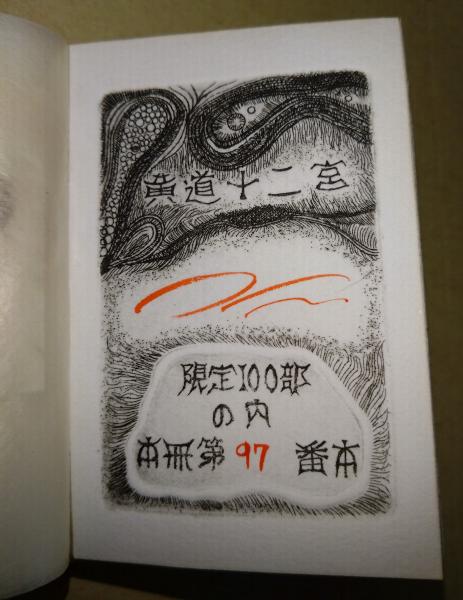 黄道十二宮
限定100部
の内
本冊第97番本